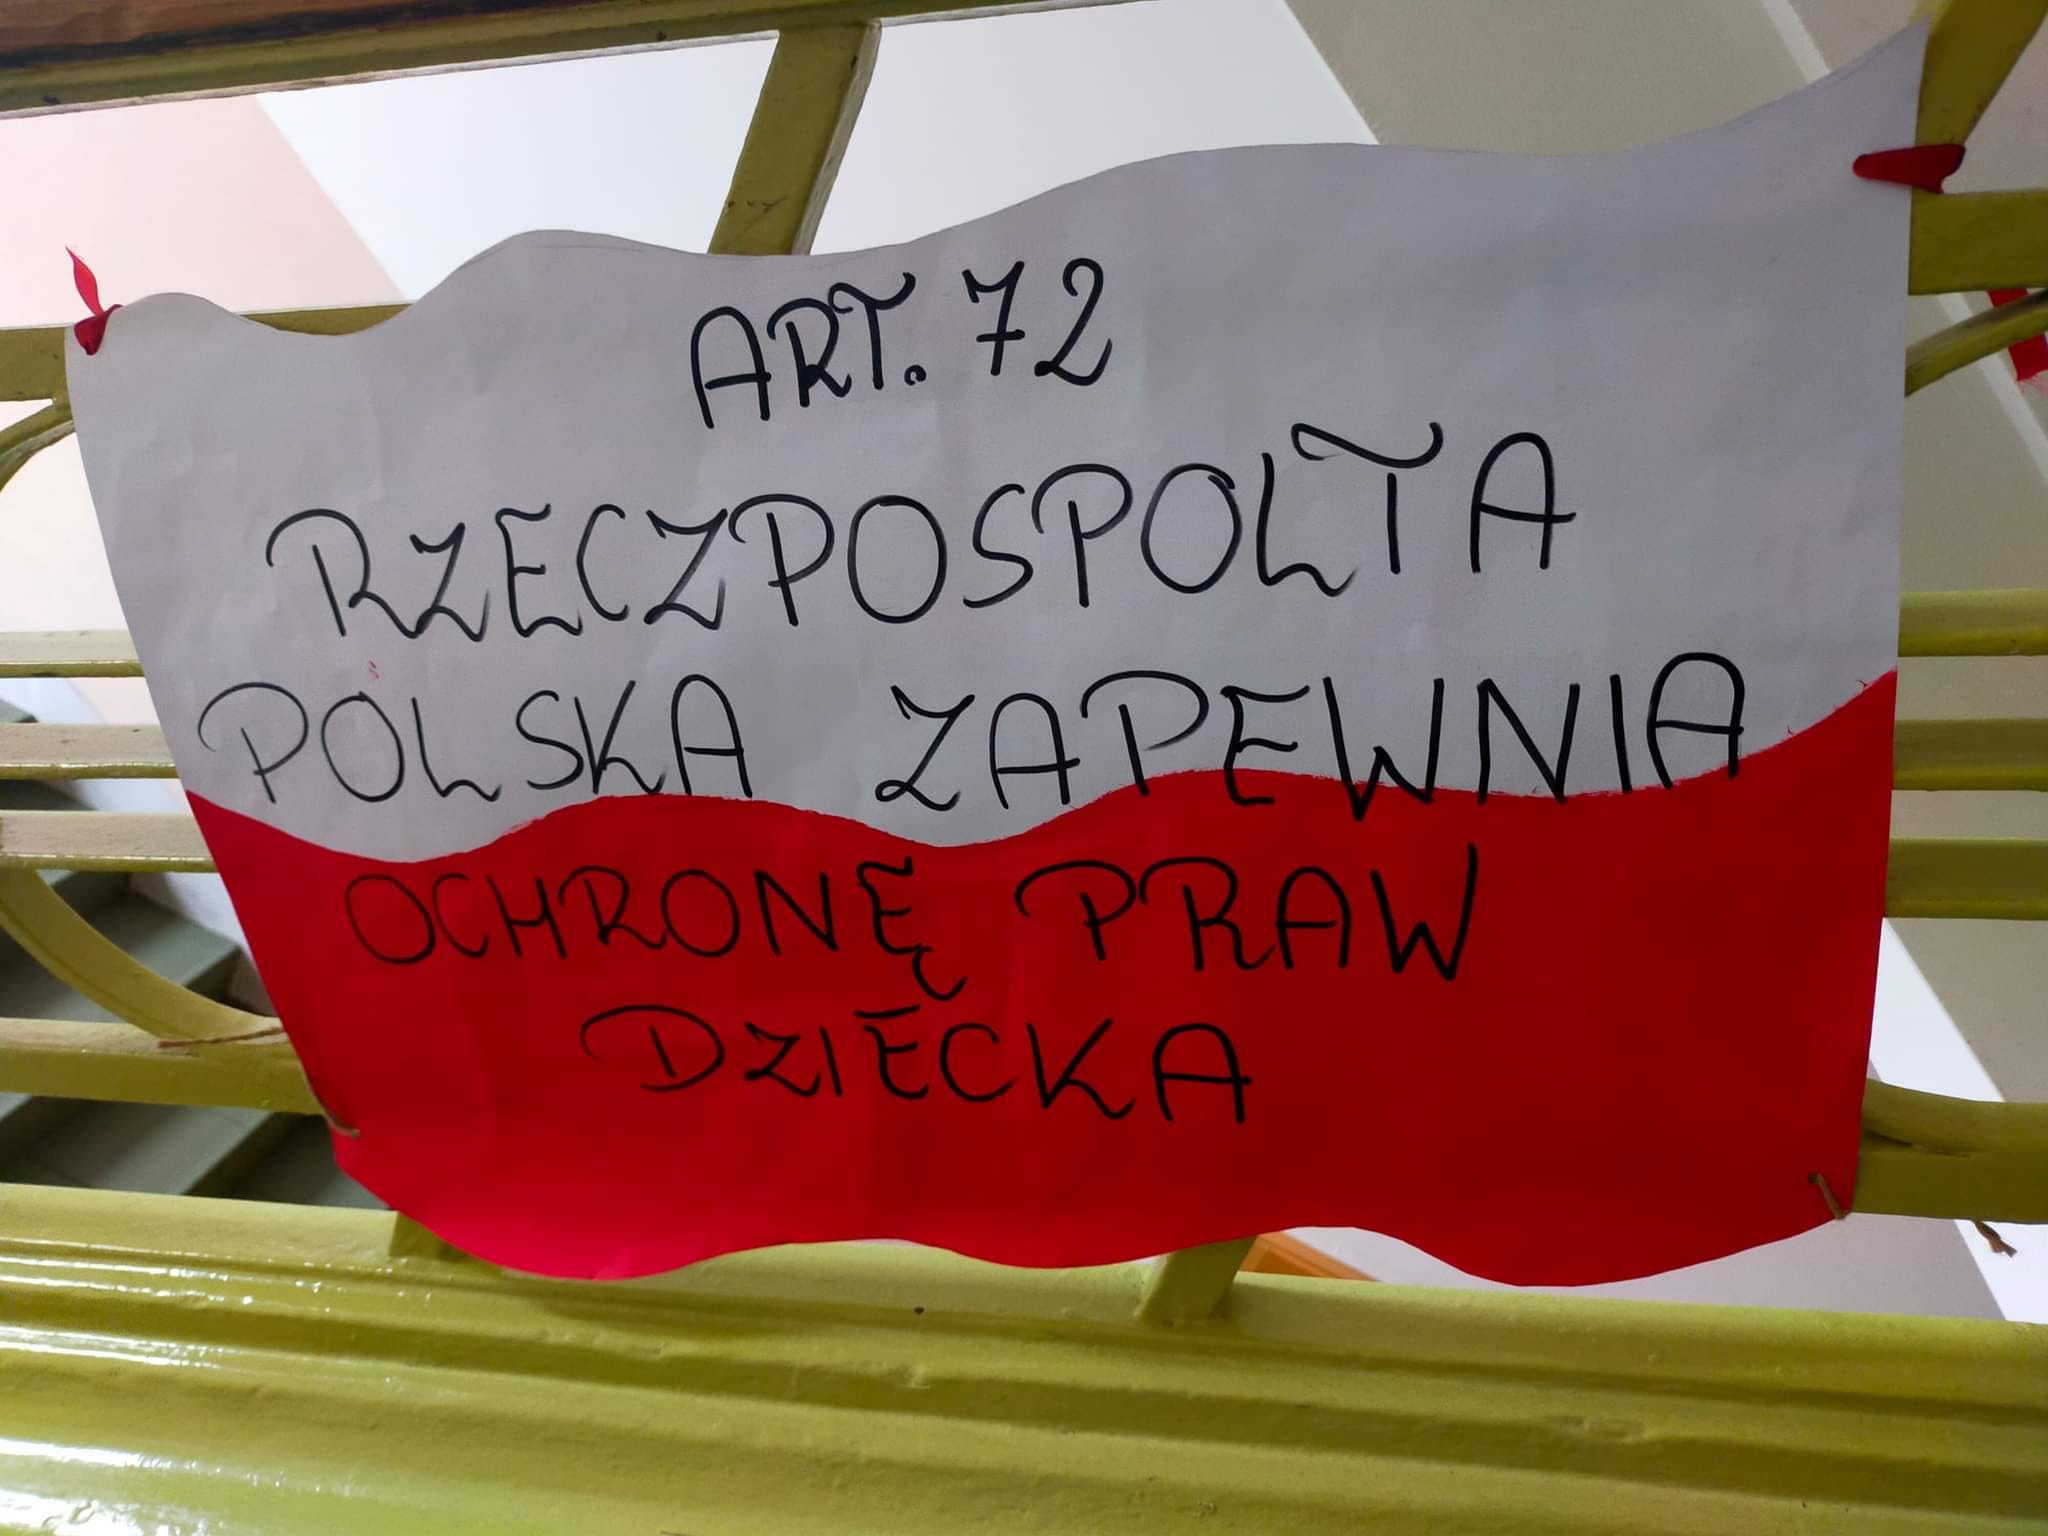 ART. 72
RZECZPOSPOLTA
POLSKA ZAPEWNIA
OCHRONĘ PRAW
DZIECKA